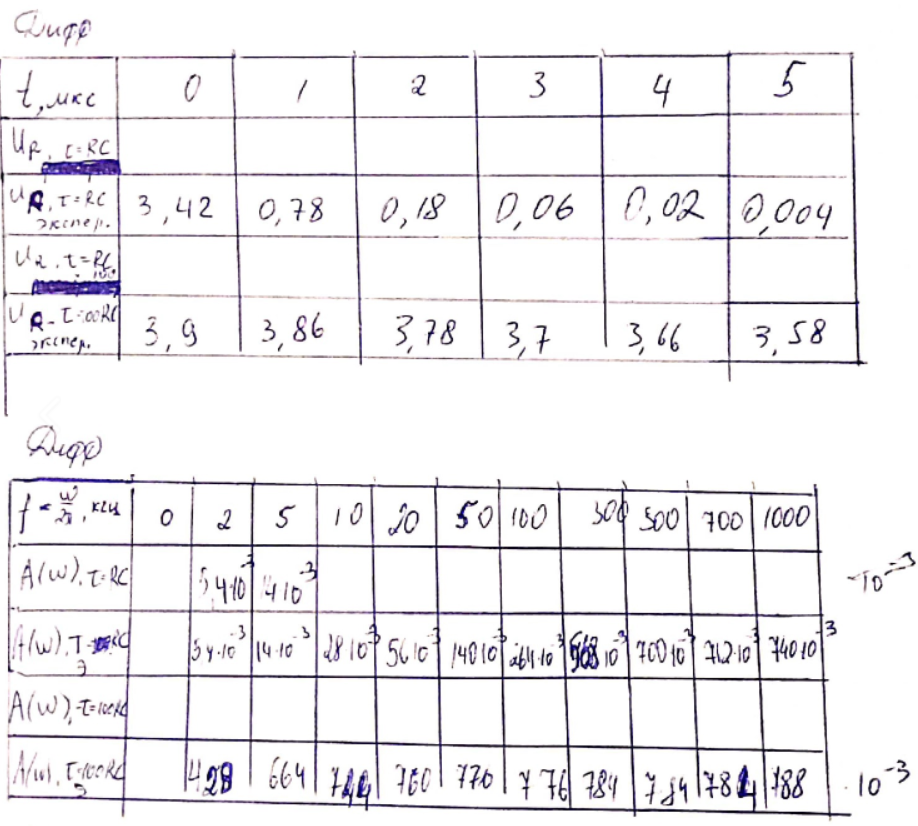 Дифф
t, мкс 0 1 2 3 4 5
U_R, τ=RC
U_R, τ=RC экспер. 3,42 0,78 0,18 0,06 0,02 0,004
U_R, τ=RC 100
U_R, τ=100RC экспер. 3,9 3,86 3,78 3,7 3,66 3,58
Дифф
f = ω/2π, кГц 0 2 5 10 20 50 100 300 500 700 1000
A(ω), τ=RC 5,4·10^-3 14·10^-3 ·10^-3
A(ω), τ= RC э 5,4·10^-3 14·10^-3 28·10^-3 56·10^-3 140·10^-3 264·10^-3 ·10^-3 700·10^-3 712·10^-3 740·10^-3
A(ω), τ=100RC
A(ω), τ=100RC э 428 664 760 770 776 784 784 788 ·10^-3